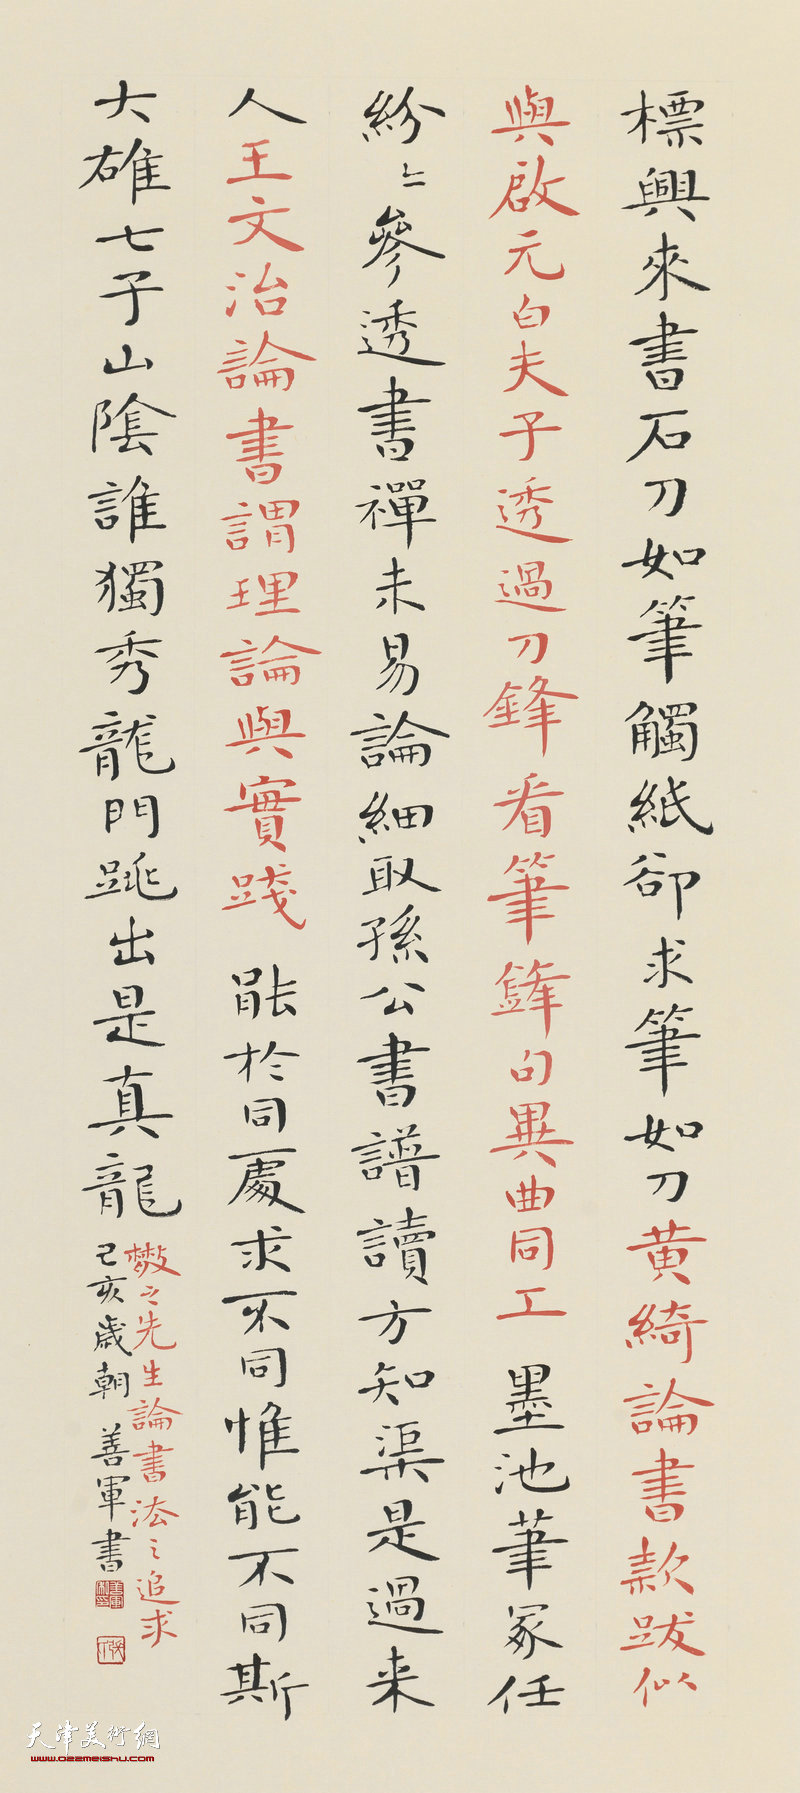 標興來書石刀如筆觸紙卻求筆如刀黄綺論書款跋似
與啟元白夫子透過刀鋒看筆鋒句異曲同工墨池筆冢任
紛〻參透書禪未易論細取孫公書譜讀方知渠是過来
人王文治論書謂理論與實踐能於同處求不同惟能不同斯
大雄七子山陰誰獨秀龍門跳出是真龍
敝之先生論書法之追求
己亥歲朝善軍書
天津美術網
www.022meishu.com